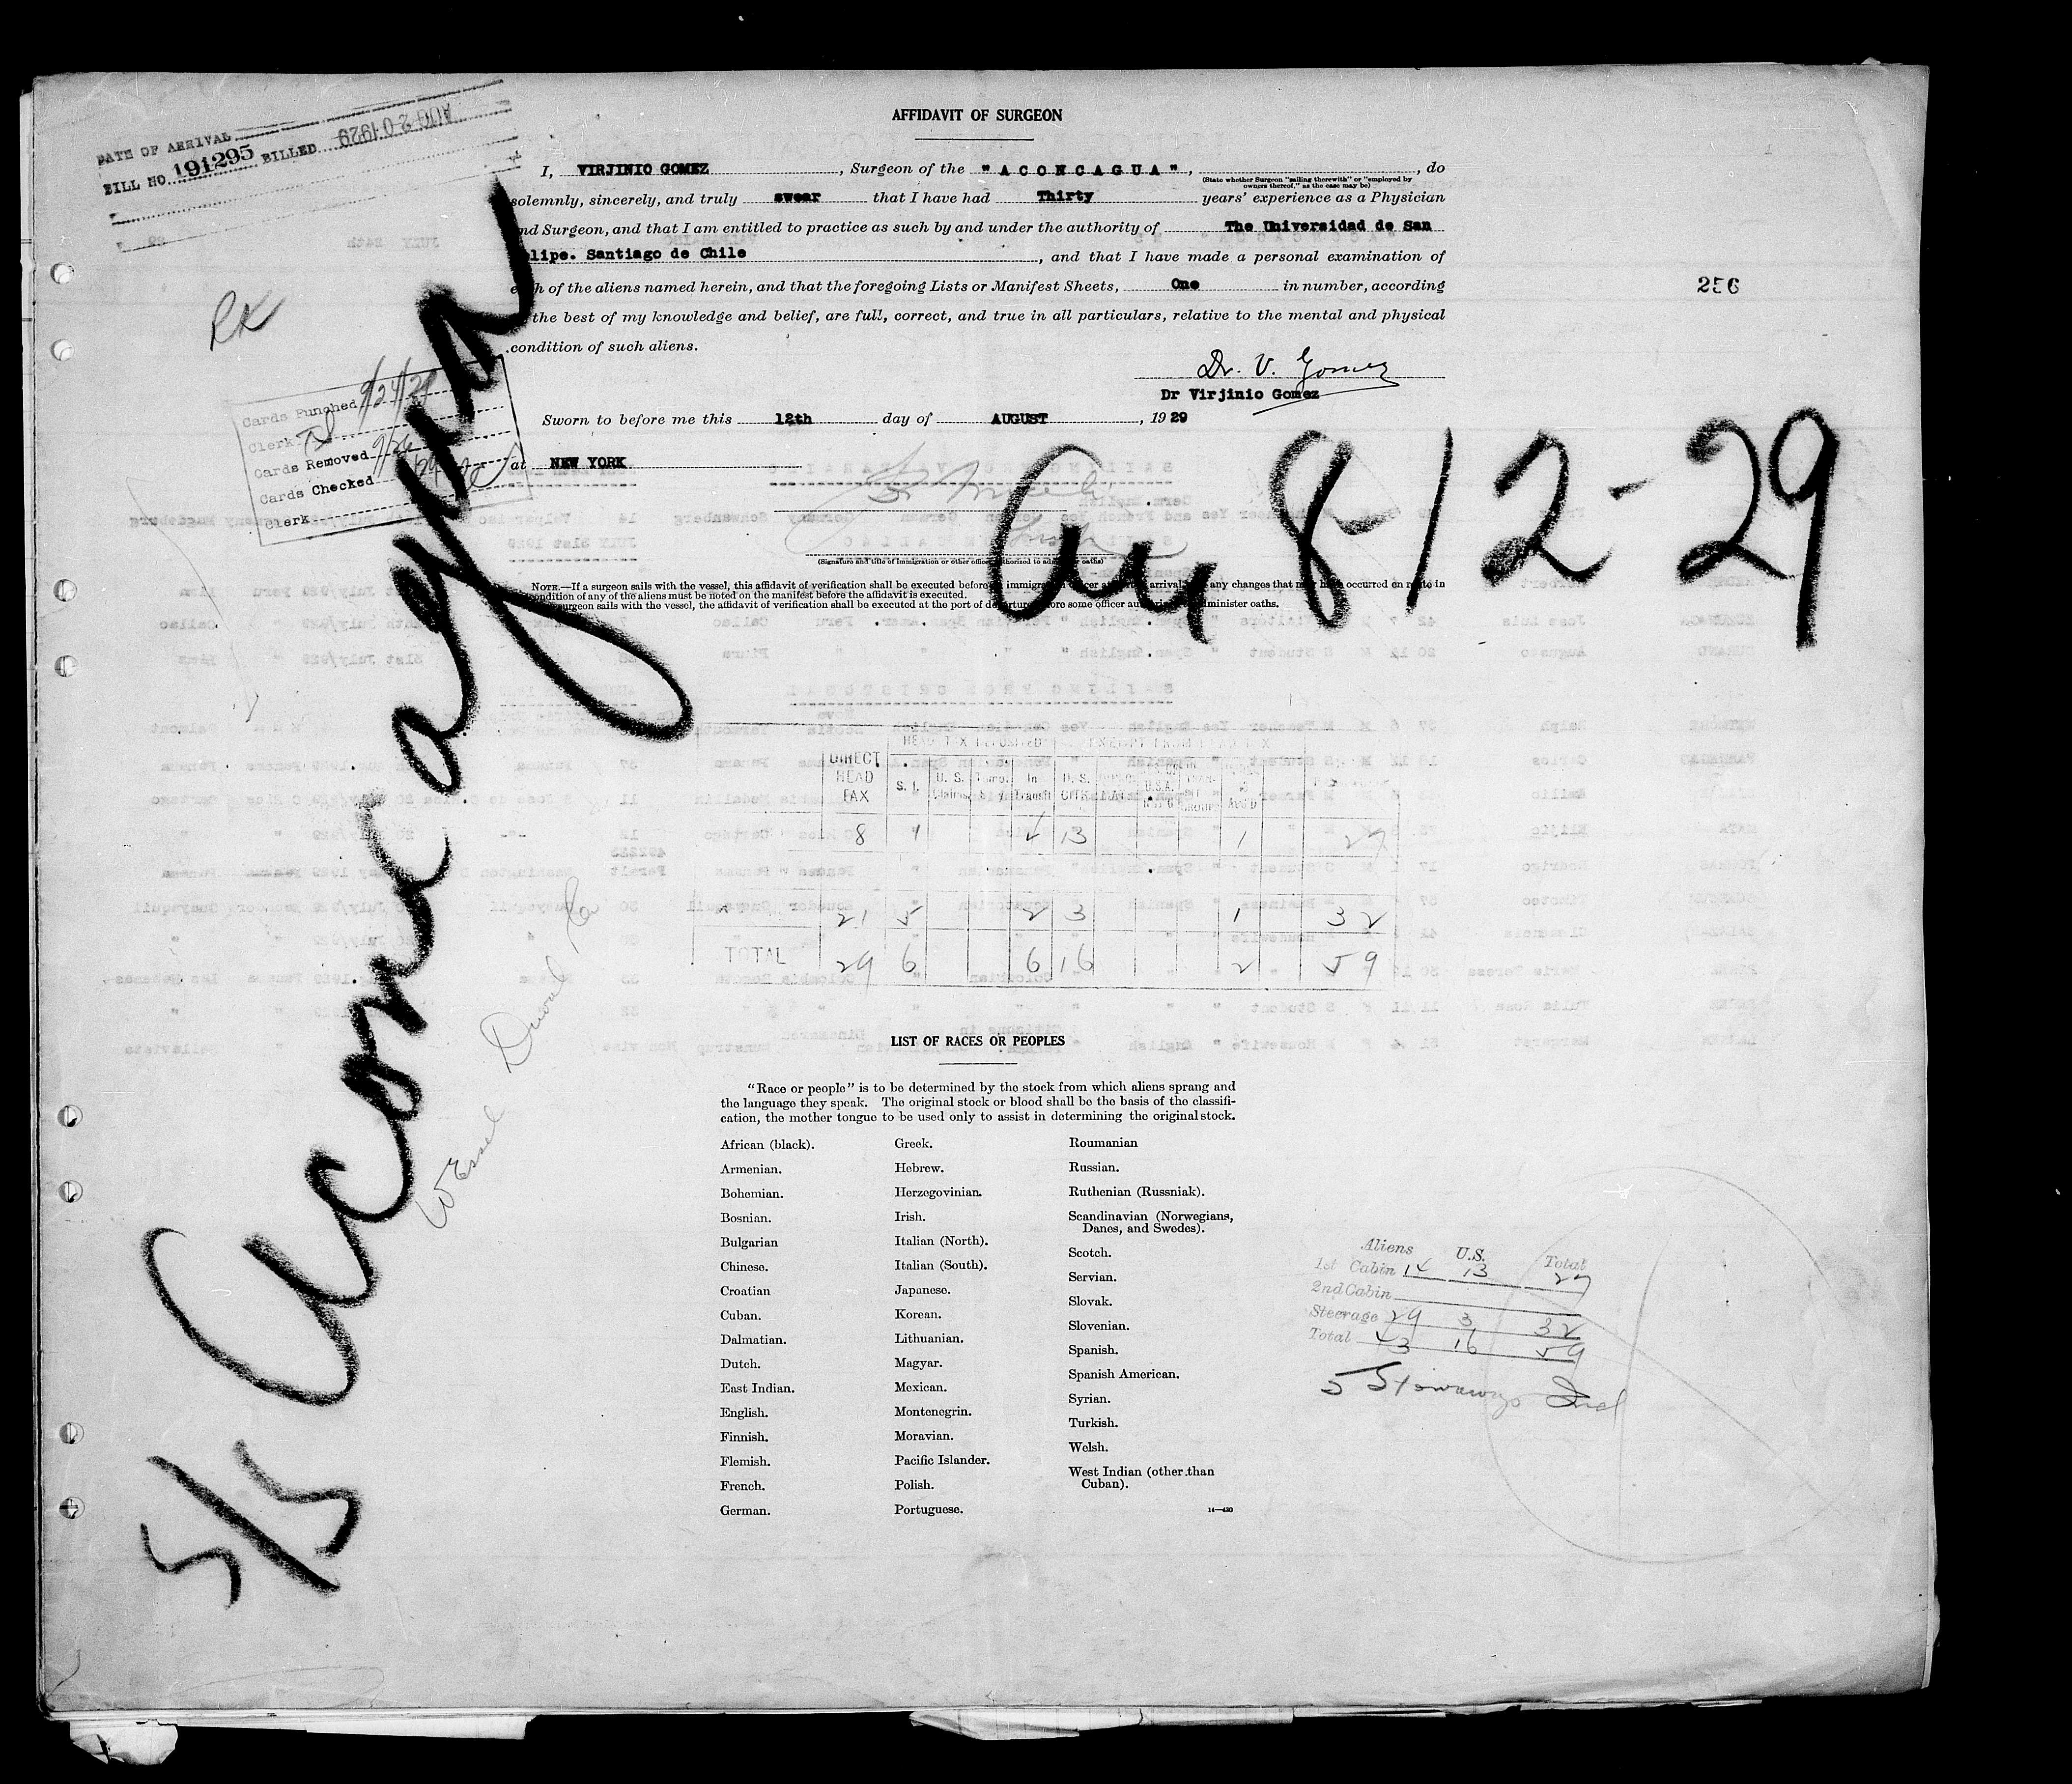 AFFIDAVIT OF SURGEON
DATE OF ARRIVAL
BILL NO. 191295 BILLED AUG 20 1929
I, VIRJINIO GOMEZ, Surgeon of the "ACONCAGUA", , do
(State whether Surgeon "sailing therewith" or "employed by owners thereof," as the case may be)
solemnly, sincerely, and truly swear that I have had Thirty years' experience as a Physician
nd Surgeon, and that I am entitled to practice as such by and under the authority of The Universidad de San
elipe. Santiago de Chile, and that I have made a personal examination of
each of the aliens named herein, and that the foregoing Lists or Manifest Sheets, One in number, according
the best of my knowledge and belief, are full, correct, and true in all particulars, relative to the mental and physical
condition of such aliens.
256
RK
Dr. V. Gomez
Dr Virjinio Gomez
Sworn to before me this 12th day of AUGUST, 1929
at NEW YORK
Cards Punched 9/24/29
Clerk
Cards Removed 9/26
Cards Checked /29
Clerk
S/S Aconcagua
8-12-29
(Signature and title of immigration or other officer authorized to administer oaths)
NOTE.—If a surgeon sails with the vessel, this affidavit of verification shall be executed before immigration officer at arrival any changes that may have occurred en route in
condition of any of the aliens must be noted on the manifest before the affidavit is executed.
surgeon sails with the vessel, the affidavit of verification shall be executed at the port of departure before some officer authorized administer oaths.
DIRECT HEAD TAX
HEAD TAX DEPOSITED
EXEMPT FROM HEAD TAX
S. I.
U. S.
In Transit
U. S. CITZ
8 1 4 13 1 27
21 5 2 3 1 32
TOTAL 29 6 6 16 2 59
Wessel Duval & Co
LIST OF RACES OR PEOPLES
"Race or people" is to be determined by the stock from which aliens sprang and
the language they speak. The original stock or blood shall be the basis of the classifi-
cation, the mother tongue to be used only to assist in determining the original stock.
African (black).
Armenian.
Bohemian.
Bosnian.
Bulgarian
Chinese.
Croatian
Cuban.
Dalmatian.
Dutch.
East Indian.
English.
Finnish.
Flemish.
French.
German.
Greek.
Hebrew.
Herzegovinian.
Irish.
Italian (North).
Italian (South).
Japanese.
Korean.
Lithuanian.
Magyar.
Mexican.
Montenegrin.
Moravian.
Pacific Islander.
Polish.
Portuguese.
Roumanian
Russian.
Ruthenian (Russniak).
Scandinavian (Norwegians,
Danes, and Swedes).
Scotch.
Servian.
Slovak.
Slovenian.
Spanish.
Spanish American.
Syrian.
Turkish.
Welsh.
West Indian (other than
Cuban).
14—430
Aliens U.S. Total
1st Cabin 14 13 27
2nd Cabin
Steerage 29 3 32
Total 43 16 59
5 Stowaways Incl